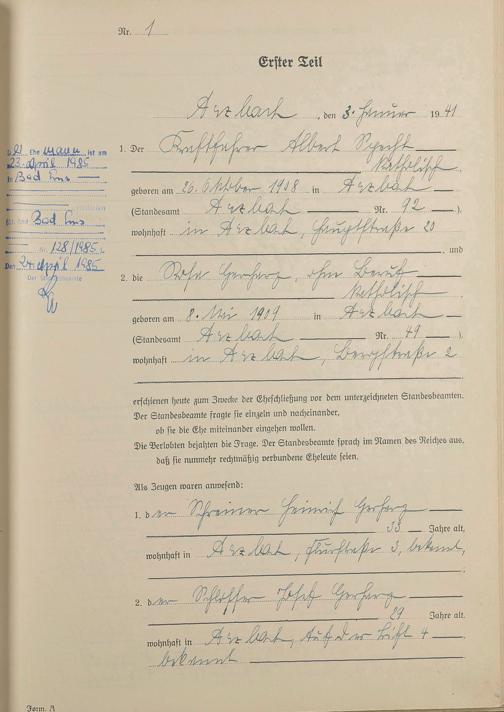 Nr. 1
Erster Teil
Arzbach, den 3. Januar 1941
1. Der Kraftfahrer Albert Specht
katholisch
geboren am 26. Oktober 1908 in Arzbach
(Standesamt Arzbach Nr. 92)
wohnhaft in Arzbach, Hauptstraße 20
, und
2. die Rosa Gerharz, ohne Beruf
katholisch
geboren am 8. Mai 1909 in Arzbach
(Standesamt Arzbach Nr. 49)
wohnhaft in Arzbach, Bergstraße 2
erschienen heute zum Zwecke der Eheschließung vor dem unterzeichneten Standesbeamten.
Der Standesbeamte fragte sie einzeln und nacheinander,
ob sie die Ehe miteinander eingehen wollen.
Die Verlobten bejahten die Frage. Der Standesbeamte sprach im Namen des Reiches aus,
daß sie nunmehr rechtmäßig verbundene Eheleute seien.
Als Zeugen waren anwesend:
1. der Schreiner Heinrich Gerharz
33 Jahre alt,
wohnhaft in Arzbach, Flurstraße 3, bekannt,
2. der Schlosser Josef Gerharz
29 Jahre alt.
wohnhaft in Arzbach, Auf der 4
bekannt
Form. A
Ehemann ist am
23. April 1985
in Bad Ems
Bad Ems
Nr. 128/1985
Den 24. April 1985
Der Standesbeamte